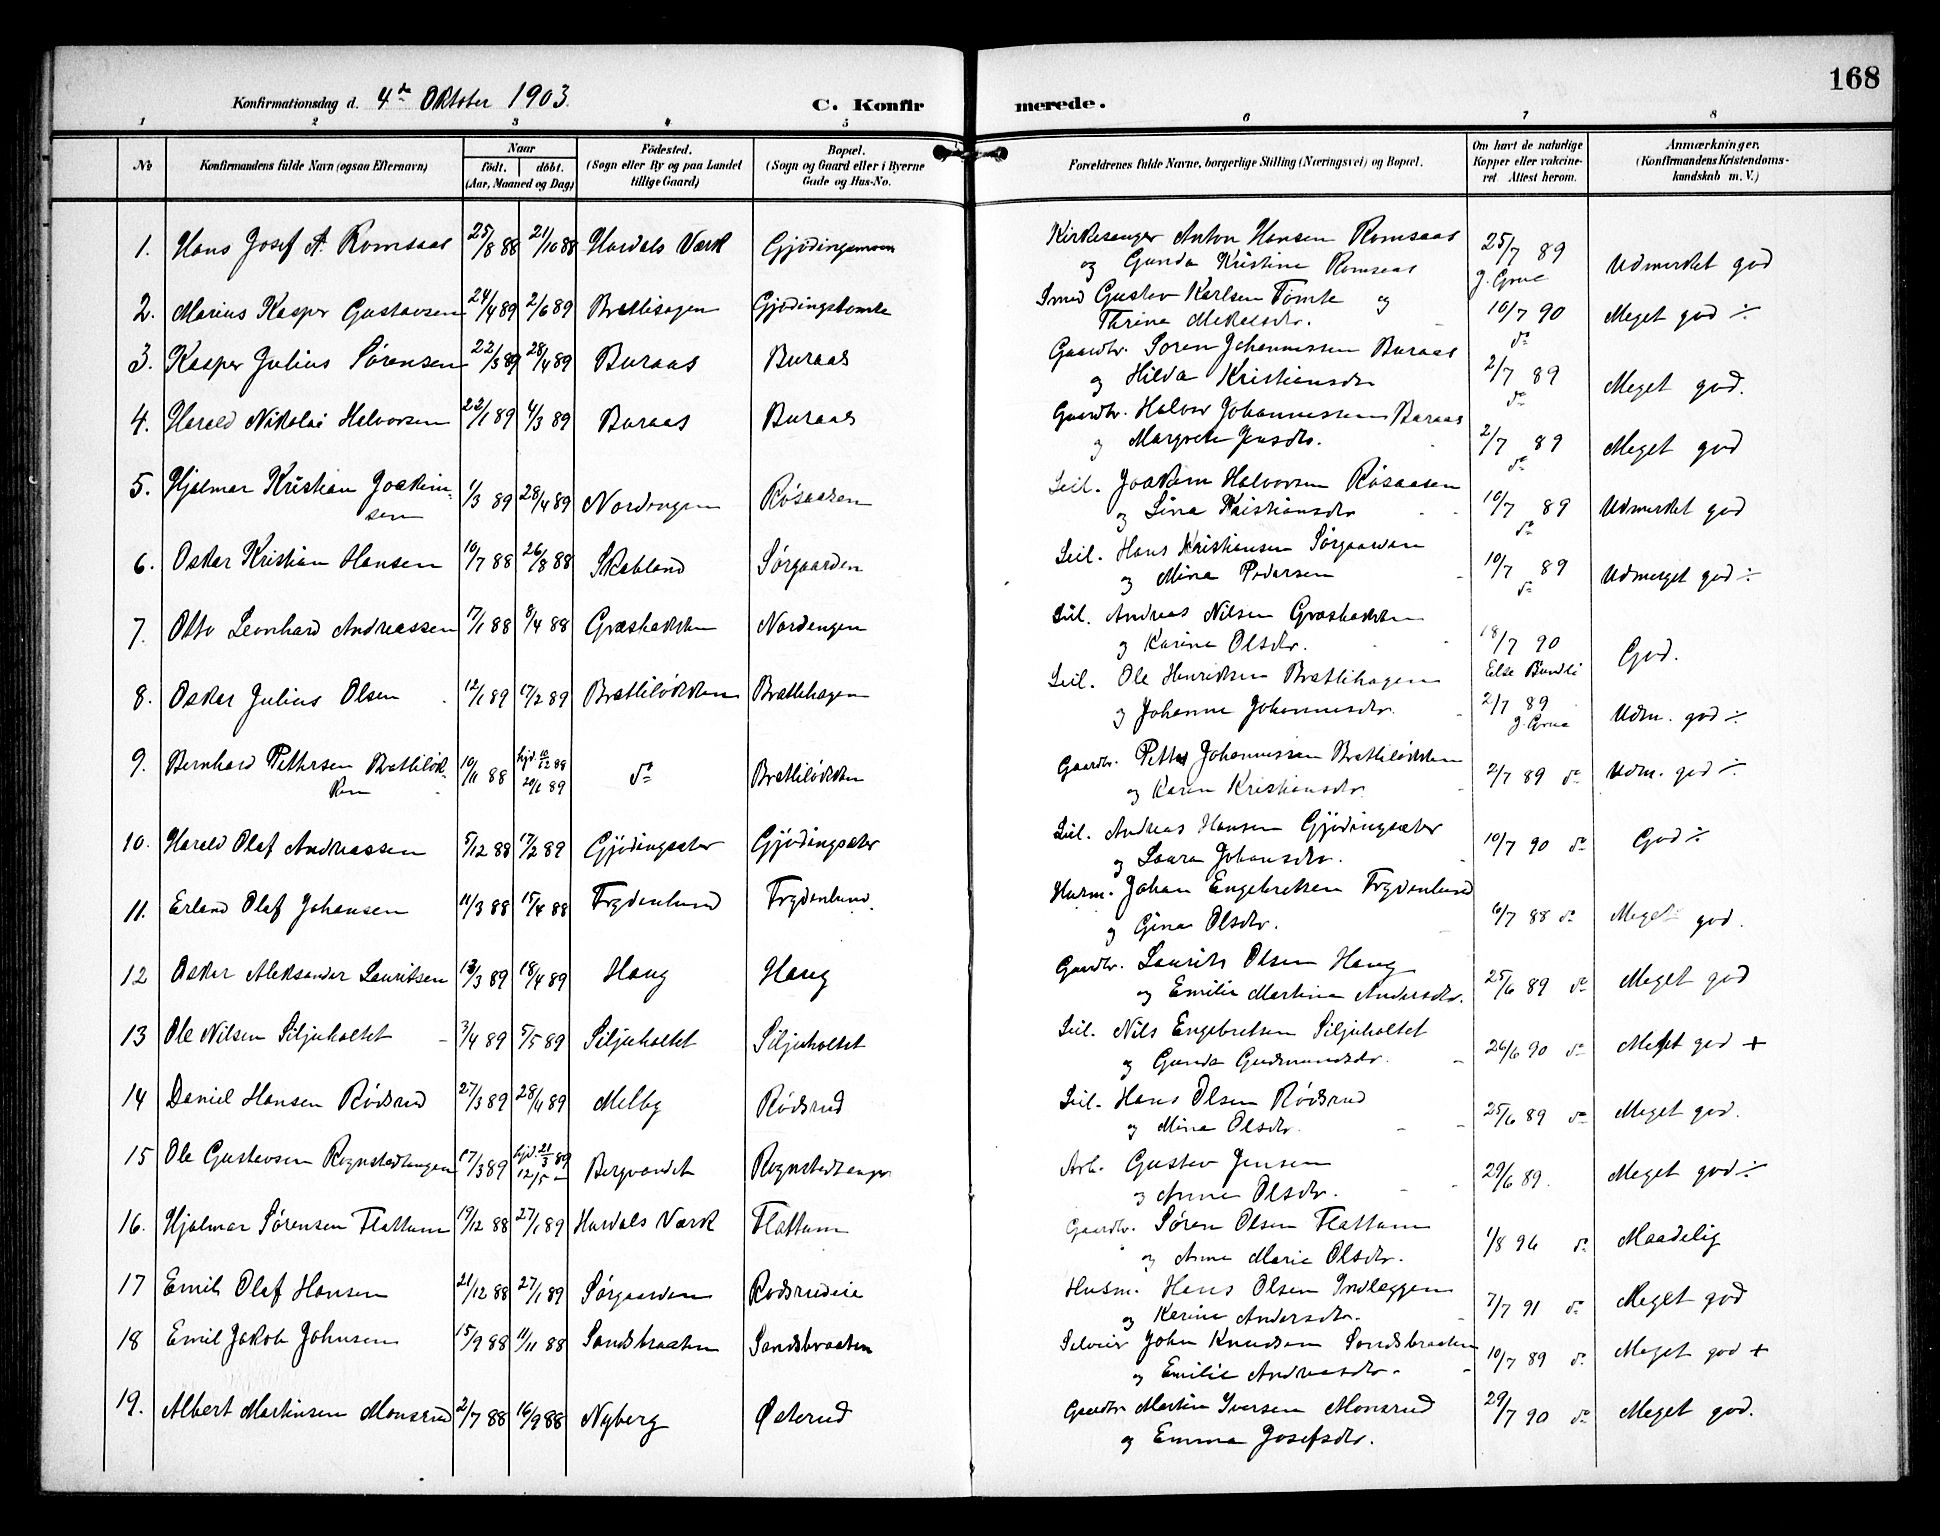 168
Konfirmationsdag d. 4de Oktober 1903.
C. Konfirmerede.
1 2 3 4 5 6 7 8
No
Konfirmandens fulde Navn (ogsaa Efternavn)
Naar
födt. döbt.
(Aar, Maaned og Dag)
Födested.
(Sogn eller By og paa Landet
tillige Gaard)
Bopæl.
(Sogn og Gaard eller i Byerne
Gade og Hus-No.
Forældrenes fulde Navne, borgerlige Stilling (Næringsvei) og Bopæl.
Om havt de naturlige
Kopper eller vakcine-
ret Attest herom.
Anmærkninger,
(Konfirmandens Kristendoms-
kundskab m. V.)
1. Hans Josef A. Romsaas 25/8 88 21/10 88 Hurdals Værk Gjødingsmoen Kirkesanger Anton Hansen Romsaas 25/7 89 Udmerket god
og Gunda Kristine Romsaas J. Grue
2. Marius Kasper Gustavsen 24/4 89 2/6 89 Brettisagen Gjødingstomte Smed Gustav Karlsen Tømte og 10/7 90 Meget god ÷
Thrine Mekelsdtr. do
3. Kasper Julius Sørensen 22/3 89 28/4 89 Buraas Buraas Gaardbr. Søren Johannessen Buraas 2/7 89 Meget god.
og Hilda Kristiansdtr do
4. Harald Nikolai Halvorsen 22/1 89 4/3 89 Buraas Buraas Gaardbr. Halvor Johannessen Buraas 2/7 89 Meget god
og Margrete Jensdtr. do
5. Hjalmar Kristian Joakim- 1/3 89 28/4 89 Nordengen Røsaasen Leil. Joakim Halvorsen Røsaasen 10/7 89 Udmerket god
sen og Lina Kristiansdtr do
6. Oskar Kristian Hansen 10/7 88 26/8 88 Skabland Sørgaarden Leil. Hans Kristiansen Sørgaarden 10/7 89 Udmerget god ÷
og Mina Pedersen do
7. Otto Leonhard Andreassen 17/1 88 8/4 88 Græsbakken Nordengen Leil. Andreas Nilsen Græsbakken 18/7 90 God.
og Karina Olsdtr. Else Bundli
8. Oskar Julius Olsen 12/1 89 17/2 89 Brættiløkken Brættehagen Leil. Ole Henriksen Brættihagen 2/7 89 Udm. god ÷
og Johanne Johannesdtr. J. Grue
9. Bernhard Pettersen Brættiløk- 10/11 88 hjd. 10/12 88 do Brættiløkken Gaardbr. Petter Johannessen Brættiløkken 2/7 89 do Udm. god ÷
ken 20/1 89 og Karen Kristiansdtr.
10. Harald Olaf Andreassen 5/12 88 17/2 89 Gjødingsæter Gjødingsæter Leil. Andreas Hansen Gjødingsæter 10/7 90 do God ÷
og Laura Johansdtr.
11. Erland Olaf Johansen 11/3 88 15/4 88 Frydenlund Frydenlund. Husm. Johan Engebretsen Frydenlund 6/7 88 do Meget god.
og Gina Olsdtr.
12 Oskar Aleksander Lauritsen 13/3 89 18/4 89 Haug Haug Gaardbr. Laurits Olsen Haug 25/6 89 do Meget god
og Emilie Martine Andersdtr.
13 Ole Nilsen Siljuholtet 3/4 89 5/5 89 Siljuholtet Siljuholtet Leil. Nils Engebretsen Siljuholtet 26/6 90 do Meget god +
og Gunda Gudmundsdtr.
14 Daniel Hansen Rødsrud 27/3 89 28/4 89 Melby Rødsrud Leil. Hans Olsen Rødsrud 25/6 89 do Meget god.
og Mina Olsdtr.
15 Ole Gustavsen Rognstadtangen 17/3 89 hjd. 21/3 89 Bergvandet Rognstadtangen Arb. Gustav Jensen 29/6 89. Meget god ÷
12/5 – og Anne Olsdtr.
16. Hjalmar Sørensen Flattum 19/12 88 27/1 89 Hurdals Værk Flattum Gaardbr. Søren Olsen Flattum 1/8 96 do Maadelig
og Anne Marie Olsdtr.
17 Emil Olaf Hansen 21/12 88 27/1 89 Sørgaarden Rødsrudeie Husm. Hans Olsen Indleggen 7/7 91 do Meget god
og Karine Andersdtr.
18 Emil Jakob Johnsen 15/9 88 11/11 88 Sandsbraaten Sandsbraaten Selveier John Knudsen Sandsbraaten 10/7 89 do Meget god +
og Emilie Andreasdtr.
19. Albert Martinsen Monsrud 2/7 88 16/9 88 Nyberg Østerud Gaardbr Martin Iversen Monsrud 29/7 90 do Meget god.
og Emma Josefsdtr.